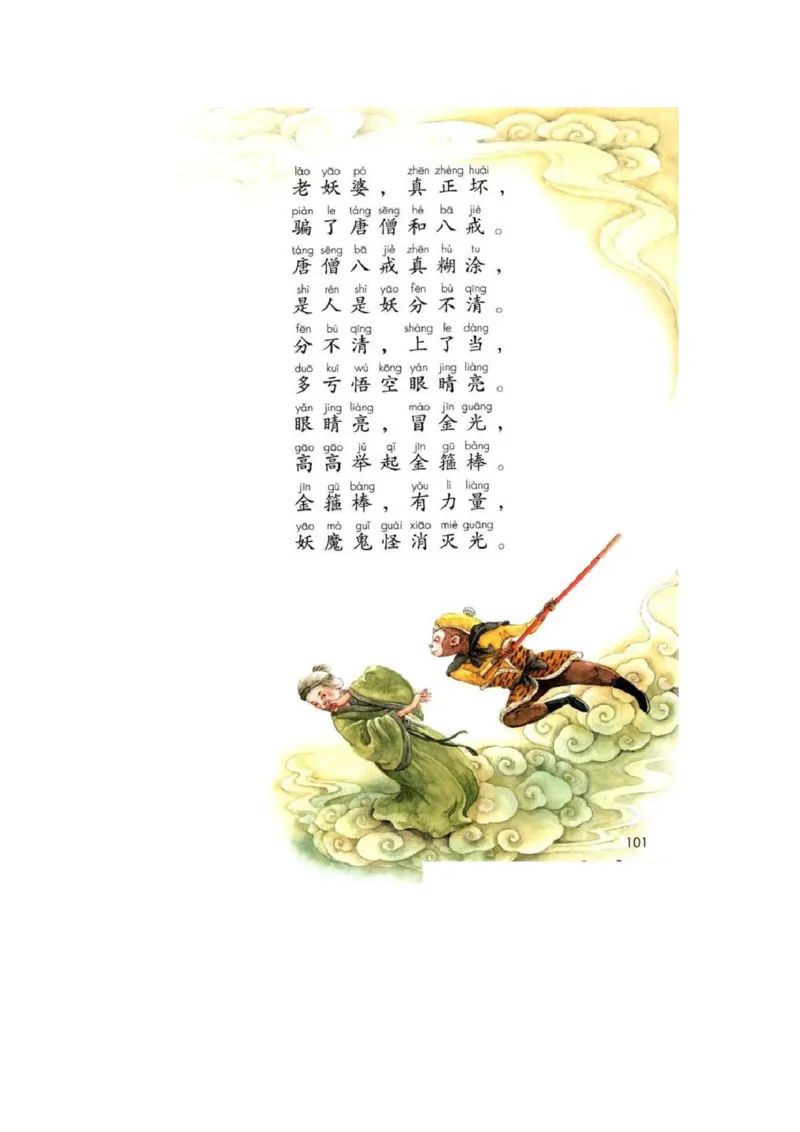 lǎo yāo pó zhēn zhèng huài
老妖婆，真正坏，
piàn le táng sēng hé bā jiè
骗了唐僧和八戒。
táng sēng bā jiè zhēn hú tu
唐僧八戒真糊涂，
shì rén shì yāo fēn bù qīng
是人是妖分不清。
fēn bù qīng shàng le dàng
分不清，上了当，
duō kuī wù kōng yǎn jing liàng
多亏悟空眼睛亮。
yǎn jing liàng mào jīn guāng
眼睛亮，冒金光，
gāo gāo jǔ qǐ jīn gū bàng
高高举起金箍棒。
jīn gū bàng yǒu lì liàng
金箍棒，有力量，
yāo mó guǐ guài xiāo miè guāng
妖魔鬼怪消灭光。
101